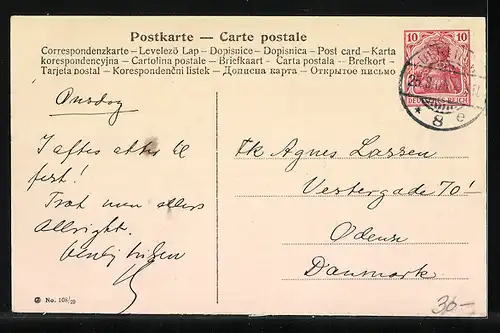 Postkarte — Carte postale
Correspondenzkarte – Levelező Lap – Dopisnice – Dopisnica – Post card – Karta
korespondencyjna – Cartolina postale – Briefkaart – Carta postala – Brefkort –
Tarjeta postal – Korespondenční lístek – Дописна карта – Открытое письмо
10 10
DEUTSCHES REICH
* 8 e
Onsdag
I aften atter til
fest!
Trat men ellers
Allright.
Venlig hilsen
Frk Agnes Lassen
Vestergade 70¹
Odense
Danmark
No. 108/29
30–